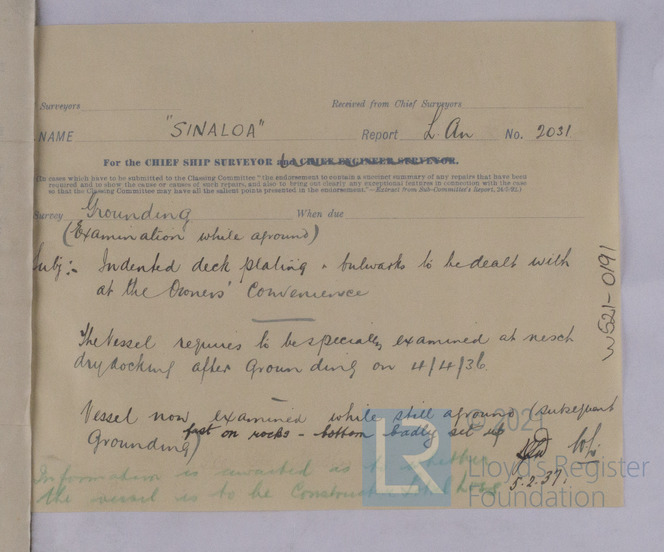 Surveyors Received from Chief Surveyors
NAME "SINALOA" Report L.An No. 2031
For the CHIEF SHIP SURVEYOR and CHIEF ENGINEER SURVEYOR.
(In cases which have to be submitted to the Classing Committee "the endorsement to contain a succinct summary of any repairs that have been
required and to show the cause or causes of such repairs, and also to bring out clearly any exceptional features in connection with the case
so that the Classing Committee may have all the salient points presented in the endorsement."—Extract from Sub-Committee's Report, 24/5/02.)
Survey Grounding When due
(Examination while aground)
Subj:- Indented deck plating & bulwarks to be dealt with
at the Owners' Convenience
The Vessel requires to be specially examined at next
drydocking after grounding on 4/4/36.
Vessel now examined while still aground (subsequent
Grounding) fast on rocks - bottom badly set up
Information is awaited as to whether
the vessel is to be Constructive Total Loss
5.2.37.
W521-0191
© 2021
LR
Lloyd's Register
Foundation